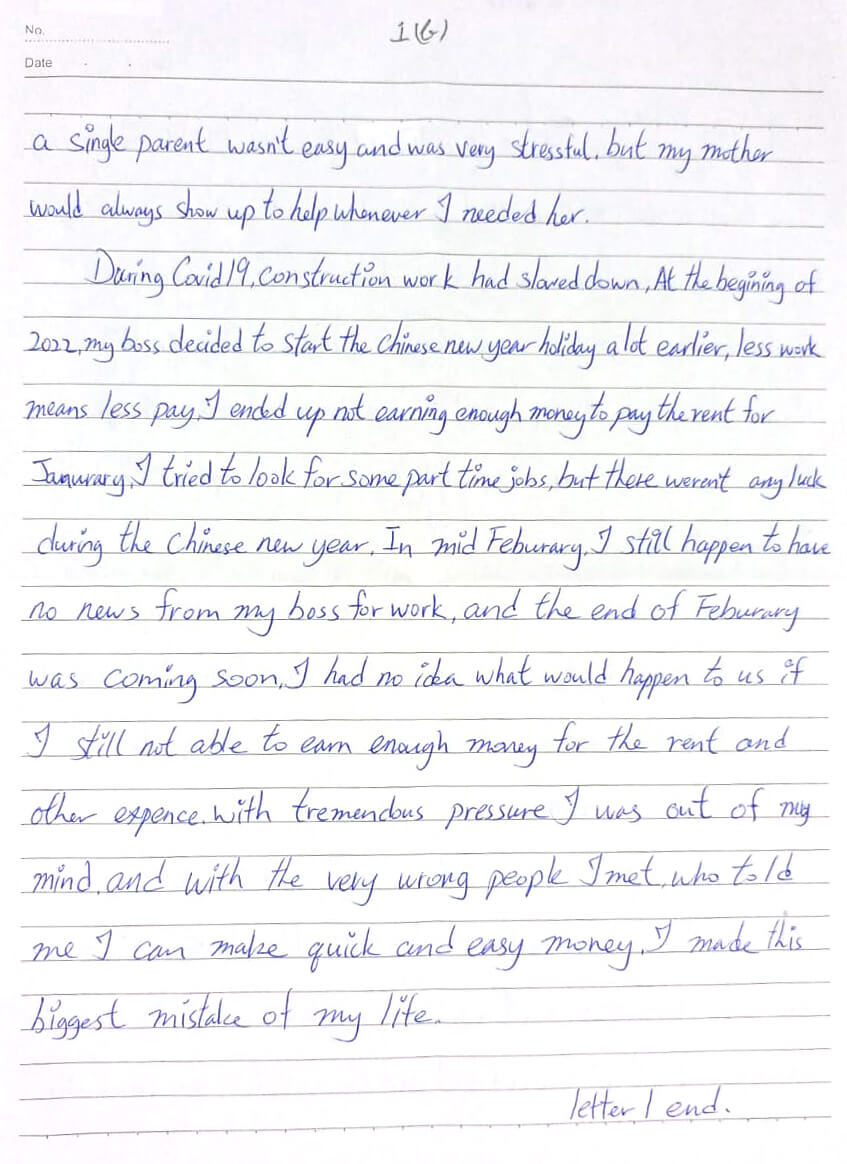 No.
1(6)
Date
a single parent wasn't easy and was very stressful, but my mother
would always show up to help whenever I needed her.
During Covid 19, construction work had slowed down, At the begining of
2022, my boss decided to start the Chinese new year holiday a lot earlier, less work
means less pay, I ended up not earning enough money to pay the rent for
Janurary, I tried to look for some part time jobs, but there weren't any luck
during the chinese new year. In mid Feburary, I still happen to have
no news from my boss for work, and the end of Feburary
was coming soon, I had no idea what would happen to us if
I still not able to earn enough money for the rent and
other expence. With tremendous pressure I was out of my
mind, and with the very wrong people I met, who told
me I can make quick and easy money, I made this
biggest mistake of my life.
letter 1 end.